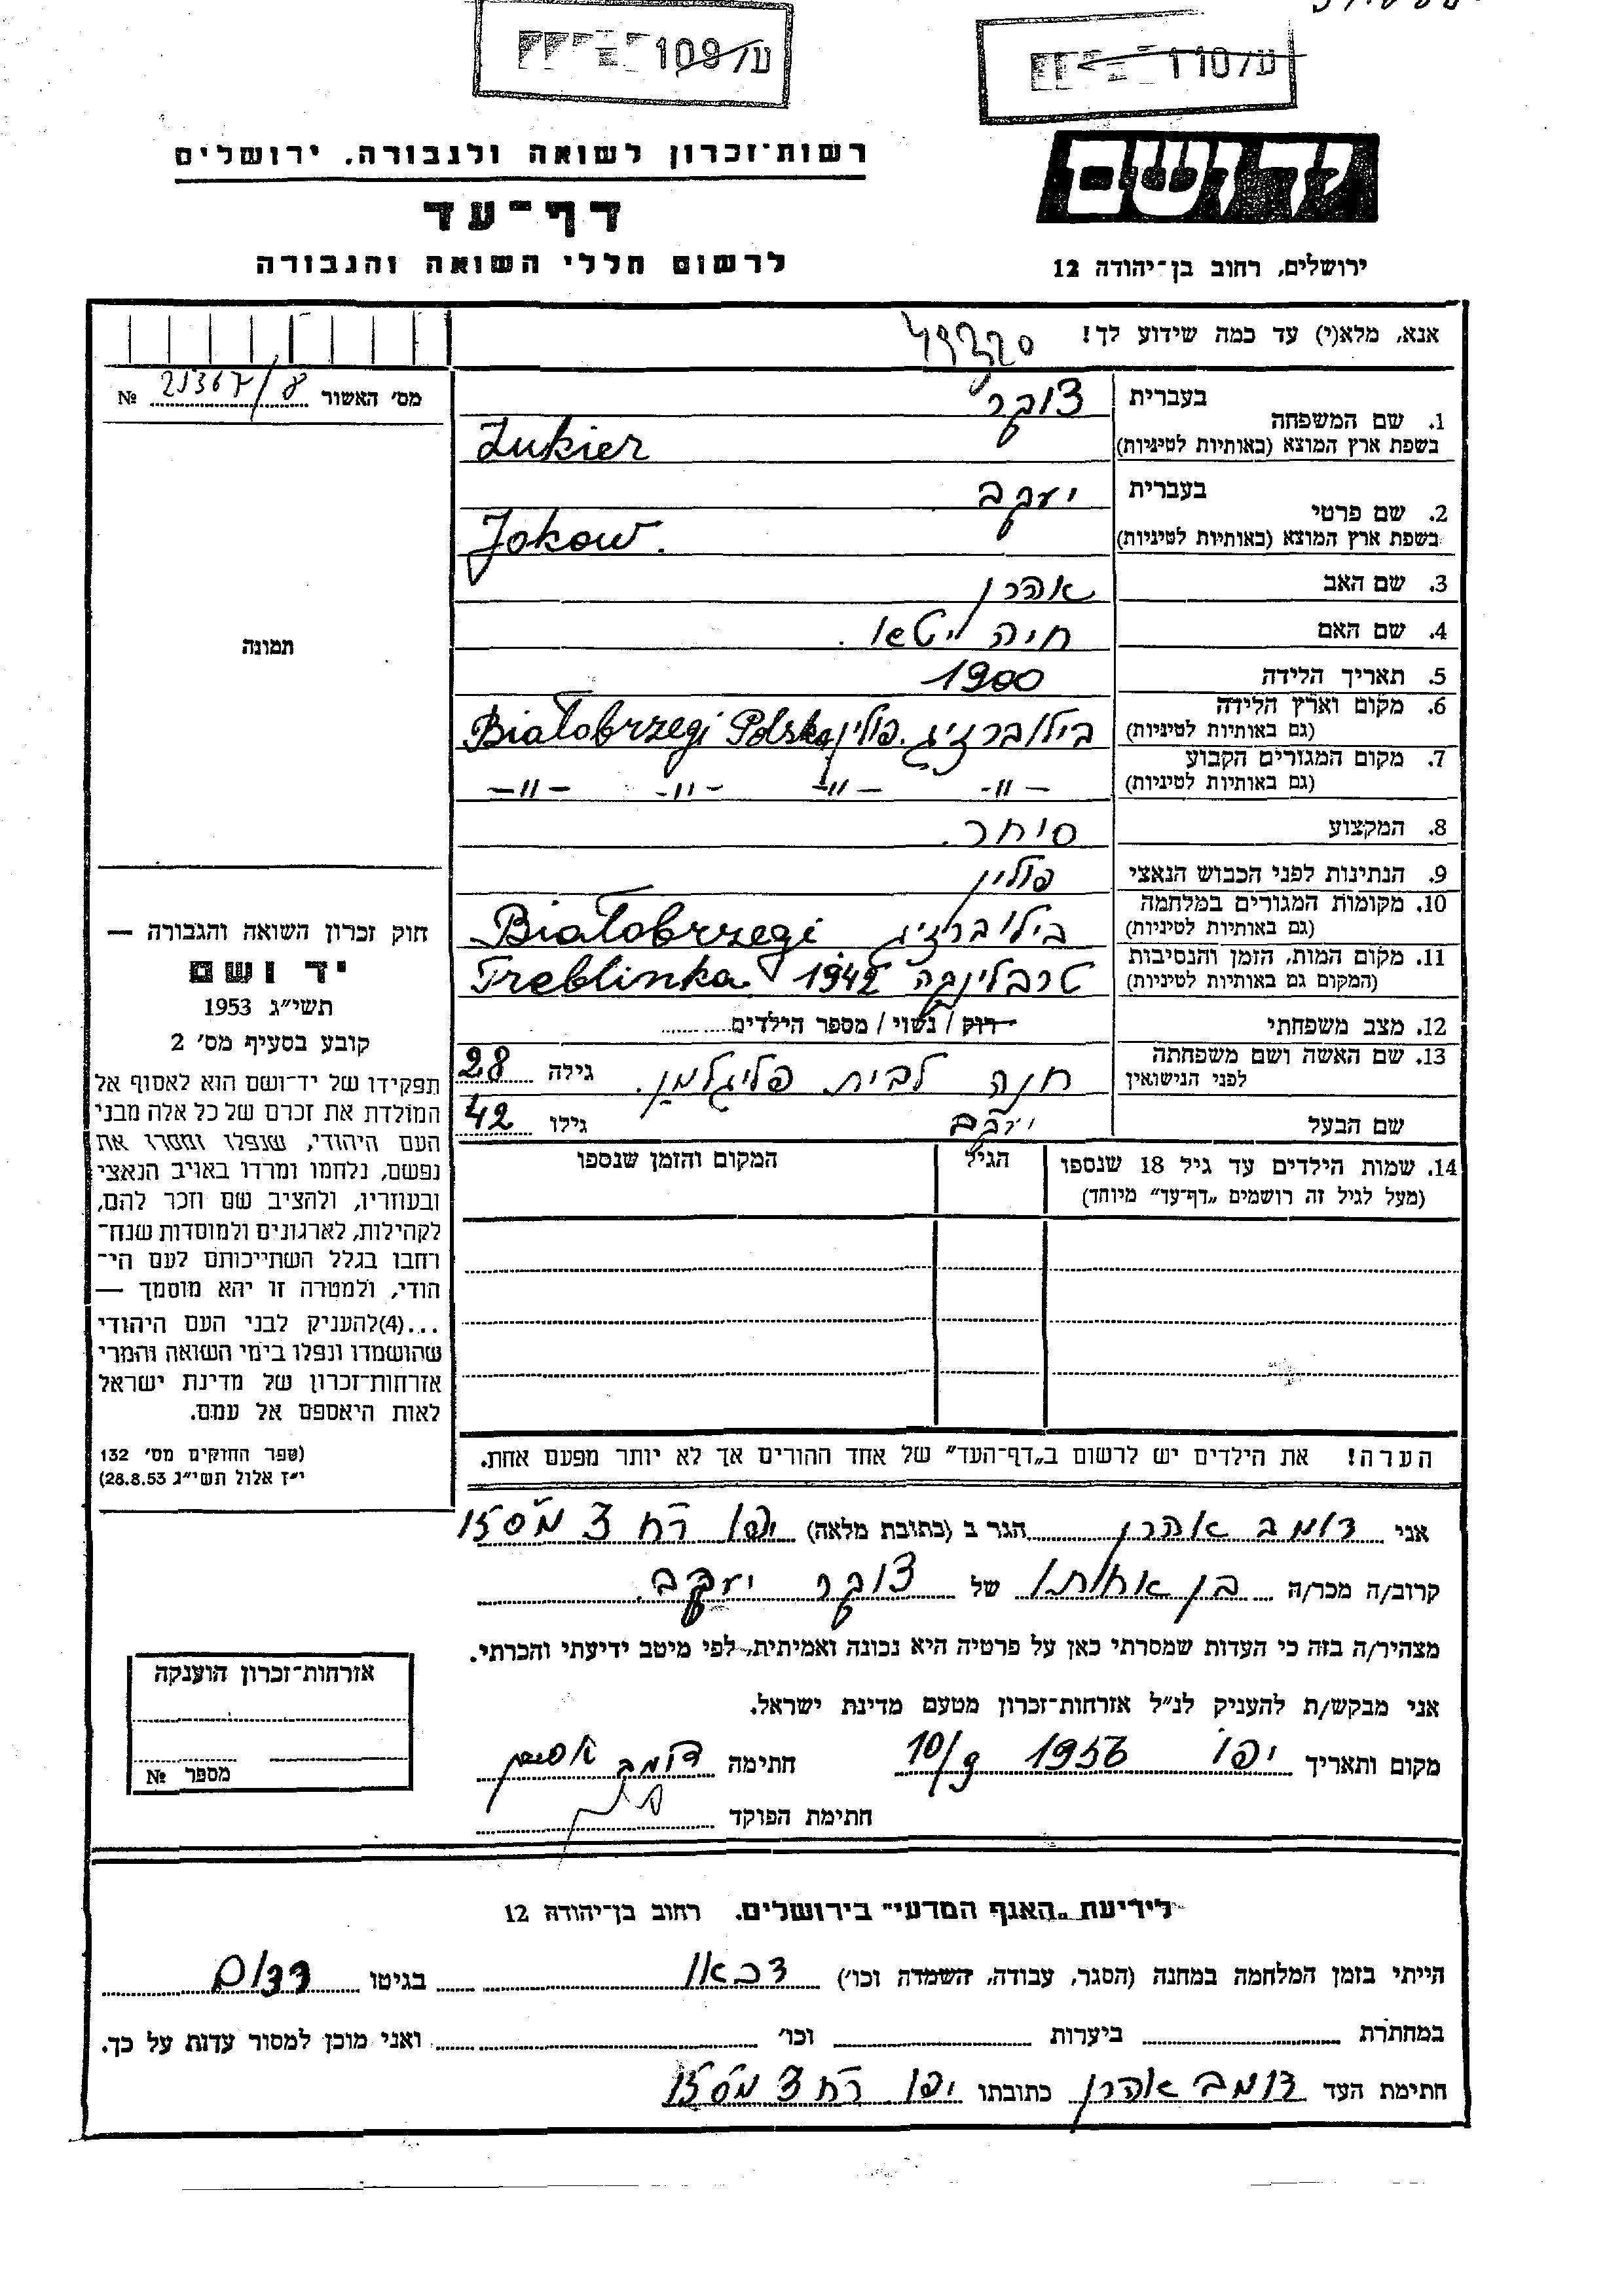 ע/109
ע/110
רשות־זכרון לשואה ולגבורה. ירושלים
דף־עד
לרשום חללי השואה והגבורה
יד ושם
ירושלים, רחוב בן־יהודה 12
אנא, מלא(י) עד כמה שידוע לך!
מס׳ האשור 21367/8 №
תמונה
1. שם המשפחה בעברית צוקר
בשפת ארץ המוצא (באותיות לטיניות) Zukier
2. שם פרטי בעברית יעקב
בשפת ארץ המוצא (באותיות לטיניות) Jokow.
3. שם האב אהרן
4. שם האם חיה
5. תאריך הלידה 1900
6. מקום וארץ הלידה (גם באותיות לטיניות) בילוברזיג. פולין Białobrzegi Polska
7. מקום המגורים הקבוע (גם באותיות לטיניות) –״– –״– –״– –״–
8. המקצוע סוחר.
9. הנתינות לפני הכבוש הנאצי פולין
10. מקומות המגורים במלחמה (גם באותיות לטיניות) בילוברזיג Białobrzegi
11. מקום המות, הזמן והנסיבות (המקום גם באותיות לטיניות) טרבלינקה 1942 Treblinka
12. מצב משפחתי רוק / נשוי / מספר הילדים
13. שם האשה ושם משפחתה לפני הנישואין חנה לבית פליגלמן. גילה 28
שם הבעל יעקב גילו 42
14. שמות הילדים עד גיל 18 שנספו (מעל לגיל זה רושמים „דף־עד״ מיוחד) הגיל המקום והזמן שנספו
הערה! את הילדים יש לרשום ב„דף־העד״ של אחד ההורים אך לא יותר מפעם אחת.
חוק זכרון השואה והגבורה —
יד ושם
תשי״ג 1953
קובע בסעיף מס׳ 2
תפקידו של יד־ושם הוא לאסוף אל
המולדת את זכרם של כל אלה מבני
העם היהודי, שנפלו ומסרו את
נפשם, נלחמו ומרדו באויב הנאצי
ובעוזריו, ולהציב שם וזכר להם,
לקהילות, לארגונים ולמוסדות שנח־
רחבו בגלל השתייכותם לעם הי־
הודי, ולמטרה זו יהא מוסמך —
...(4)להעניק לבני העם היהודי
שהושמדו ונפלו בימי השואה והמרי
אזרחות־זכרון של מדינת ישראל
לאות היאספם אל עמם.
(ספר החוקים מס׳ 132
י״ז אלול תשי״ג 28.8.53)
אני דומב אהרן הגר ב (כתובת מלאה) יפו רח 3
קרוב/ה מכר/ה בן אחותו של צוקר יעקב
מצהיר/ה בזה כי העדות שמסרתי כאן על פרטיה היא נכונה ואמיתית, לפי מיטב ידיעתי והכרתי.
אני מבקש/ת להעניק לנ״ל אזרחות־זכרון מטעם מדינת ישראל.
מקום ותאריך יפו 1956 10/9 חתימה דומב
חתימת הפוקד
אזרחות־זכרון הוענקה
מספר №
לידיעת „האגף המדעי״ בירושלים. רחוב בן־יהודה 12
הייתי בזמן המלחמה במחנה (הסגר, עבודה, השמדה וכו׳) דכאו בגיטו רדום
במחתרת ביערות וכו׳ ואני מוכן למסור עדות על כך.
חתימת העד דומב אהרן כתובתו יפו רח 3